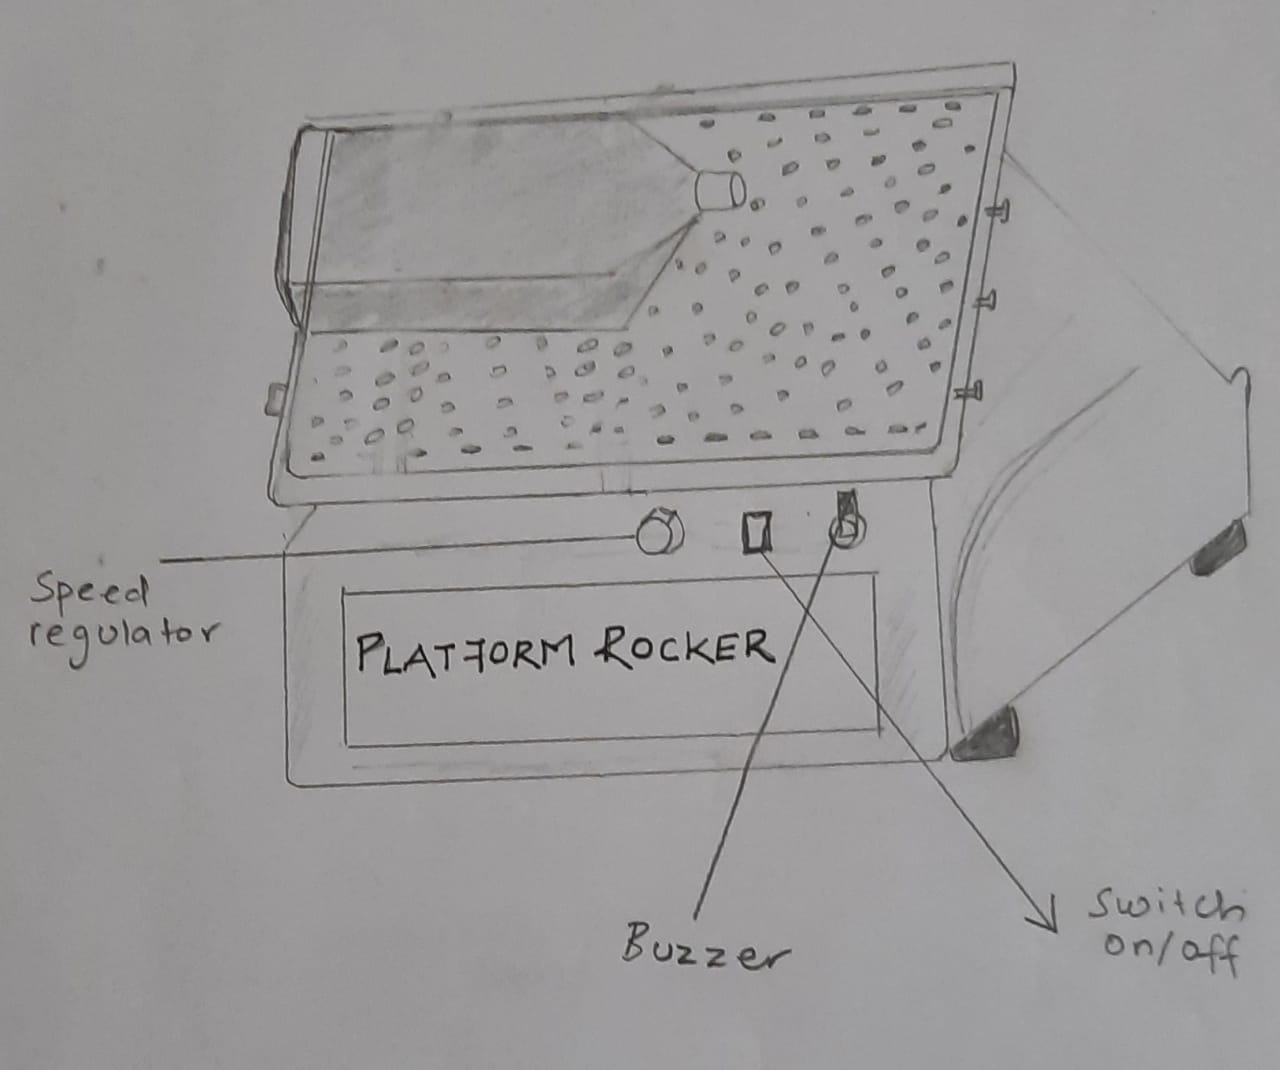 Speed
regulator
PLATFORM ROCKER
Buzzer
Switch
on/off